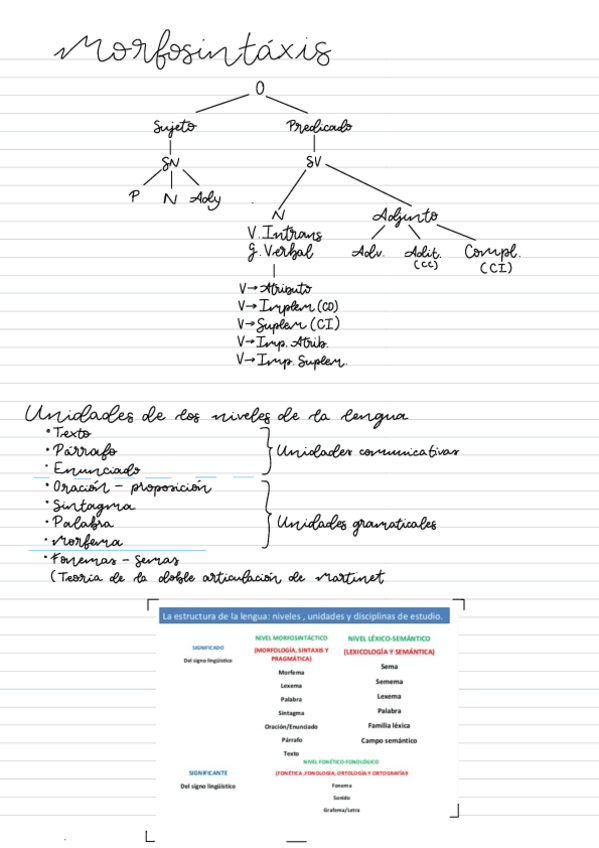 Morfosintáxis
O
Sujeto Predicado
SN SV
P N Ady
N Adjunto
V. Intrans
G. Verbal
Adv. Adit. Compl.
(CC) (CI)
V→Atributo
V→Implem (CD)
V→Suplem (CI)
V→Imp. Atrib.
V→Imp. Suplem.
Unidades de los niveles de la lengua
• Texto
• Párrafo
• Enunciado
Unidades comunicativas
• Oración - proposición
• Sintagma
• Palabra
• Morfema
Unidades gramaticales
• Fonemas - Semas
(Teoría de la doble articulación de Martinet
La estructura de la lengua: niveles , unidades y disciplinas de estudio.
SIGNIFICADO
Del signo lingüístico
NIVEL MORFOSINTÁCTICO
(MORFOLOGÍA, SINTAXIS Y
PRAGMÁTICA)
Morfema
Lexema
Palabra
Sintagma
Oración/Enunciado
Párrafo
Texto
NIVEL LÉXICO-SEMÁNTICO
(LEXICOLOGÍA Y SEMÁNTICA)
Sema
Semema
Lexema
Palabra
Familia léxica
Campo semántico
SIGNIFICANTE
Del signo lingüístico
NIVEL FONÉTICO-FONOLÓGICO
(FONÉTICA ,FONOLOGÍA, ORTOLOGÍA Y ORTOGRAFÍA)
Fonema
Sonido
Grafema/Letra